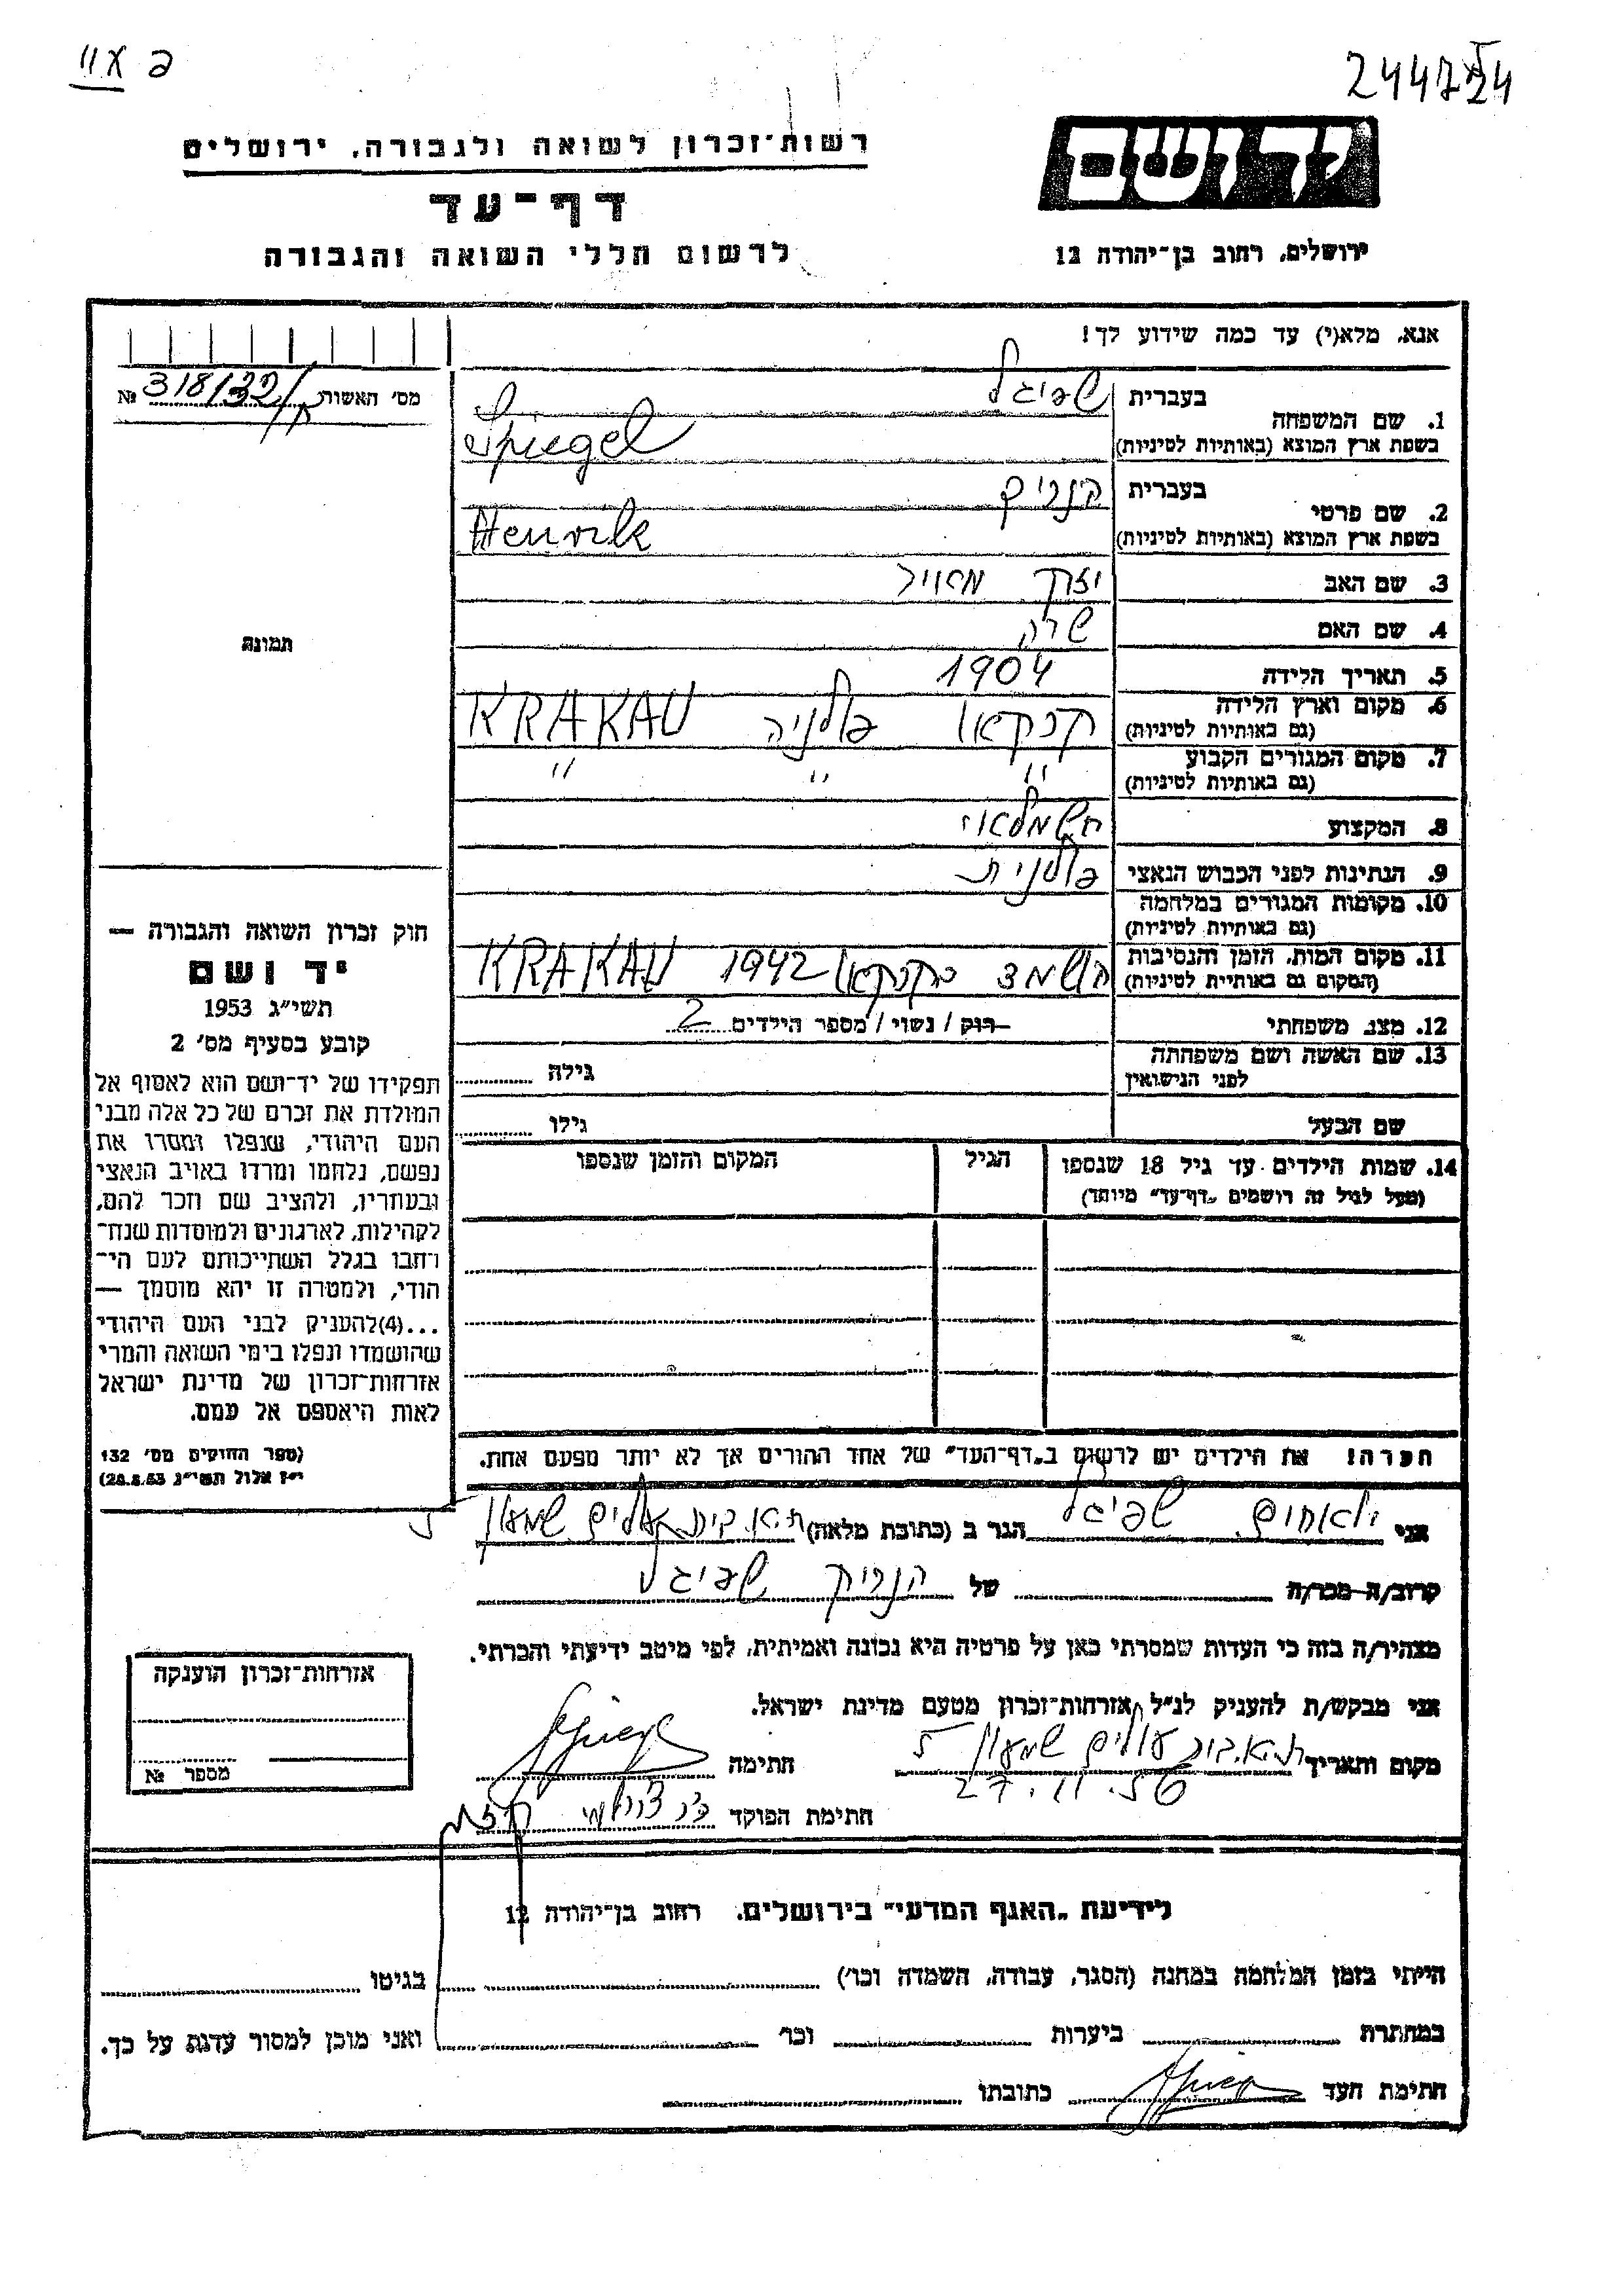 פ XII
244724
רשות־זכרון לשואה ולגבורה, ירושלים
דף־עד
לרשום חללי השואה והגבורה
יד ושם
ירושלים, רחוב בן־יהודה 12
אנא, מלא(י) עד כמה שידוע לך!
מס׳ האשות 318/32 №
תמונה
1. שם המשפחה בעברית שפיגל
בשפת ארץ המוצא (באותיות לטיניות) Spiegel
2. שם פרטי בעברית הנריק
בשפת ארץ המוצא (באותיות לטיניות) Henrik
3. שם האב יצחק
4. שם האם שרה
5. תאריך הלידה 1904
6. מקום וארץ הלידה (גם באותיות לטיניות) קרקאו פולניה KRAKAU
7. מקום המגורים הקבוע (גם באותיות לטיניות) " " "
8. המקצוע חשמלאי
9. הנתינות לפני הכבוש הנאצי פולנית
10. מקומות המגורים במלחמה (גם באותיות לטיניות)
11. מקום המות, הזמן והנסיבות (המקום גם באותיות לטיניות) הושמד בקרקאו 1942 KRAKAU
12. מצב משפחתי רווק / נשוי / מספר הילדים 2
13. שם האשה ושם משפחתה לפני הנישואין גילה
שם הבעל גילו
14. שמות הילדים עד גיל 18 שנספו הגיל המקום והזמן שנספו
(מעל לגיל זה רושמים „דף־עד" מיוחד)
חוק זכרון השואה והגבורה —
יד ושם
תשי״ג 1953
קובע בסעיף מס׳ 2
תפקידו של יד־ושם הוא לאסוף אל
המולדת את זכרם של כל אלה מבני
העם היהודי, שנפלו ומסרו את
נפשם, נלחמו ומרדו באויב הנאצי
ובעוזריו, ולהציב שם וזכר להם,
לקהילות, לארגונים ולמוסדות שנח־
רבו בגלל השתייכותם לעם הי־
הודי, ולמטרה זו יהא מוסמך —
...(4)להעניק לבני העם היהודי
שהושמדו ונפלו בימי השואה והמרי
אזרחות־זכרון של מדינת ישראל
לאות היאספם אל עמם.
(ספר החוקים מס׳ 132
י״ז אלול תשי״ג 28.8.53)
הערה! את הילדים יש לרשום ב„דף־העד" של אחד ההורים אך לא יותר מפעם אחת.
אני שפיגל הגר ב (כתובת מלאה) ת״א בית עולים שמעון 5
קרוב/ה מכר/ה של הנריק שפיגל
מצהיר/ה בזה כי העדות שמסרתי כאן על פרטיה היא נכונה ואמיתית, לפי מיטב ידיעתי והכרתי.
אני מבקש/ת להעניק לנ״ל אזרחות־זכרון מטעם מדינת ישראל.
מקום ותאריך ת״א בית עולים שמעון 5 חתימה
27.11.56
חתימת הפוקד
אזרחות־זכרון הוענקה
מספר №
לידיעת „האגף המדעי" בירושלים, רחוב בן־יהודה 12
הייתי בזמן המלחמה במחנה (הסגר, עבודה, השמדה וכו׳) בגיטו
במחתרת ביערות וכו׳ ואני מוכן למסור עדות על כך.
חתימת העד כתובתו